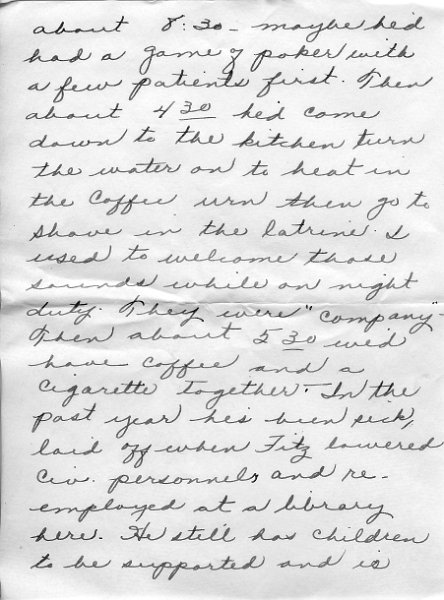 about 8:30 - maybe he'd
had a game of poker with
a few patients first. Then
about 4 30 he'd come
down to the kitchen turn
the water on to heat in
the coffee urn then go to
shave in the latrine. I
used to welcome those
sounds while on night
duty. They were "company" -
Then about 5 30 we'd
have coffee and a
cigarette together - In the
past year he's been sick,
laid off when Fitz lowered
Civ. personnel, and re-
employed at a library
here. He still has children
to be supported and is